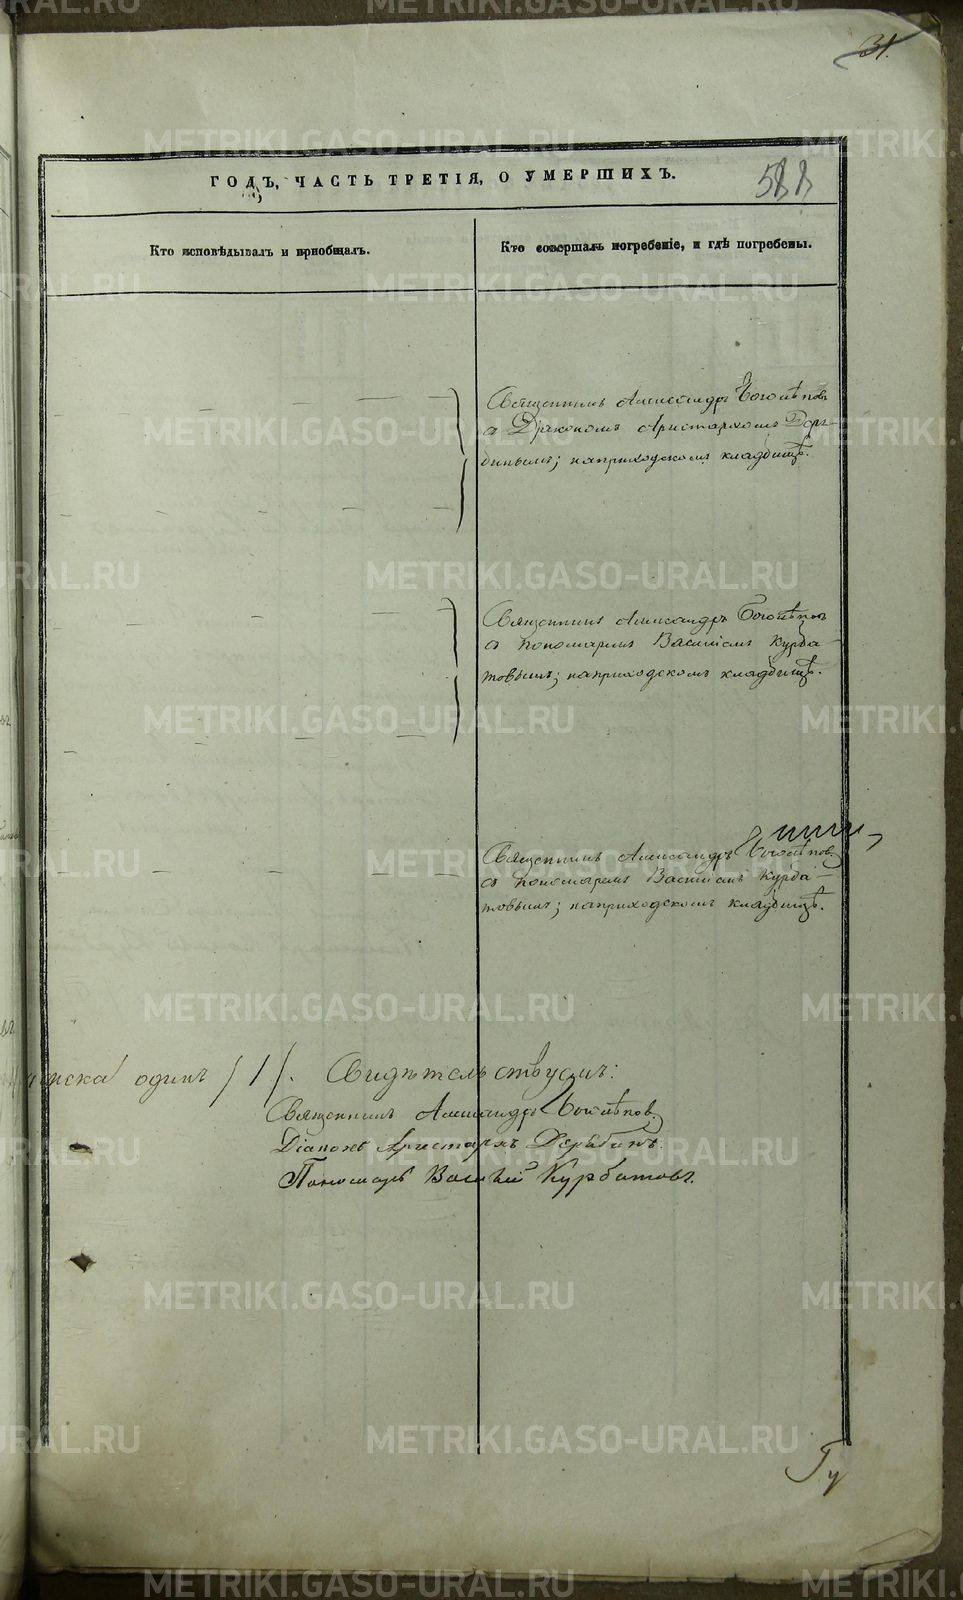 31.
ГОДЪ, ЧАСТЬ ТРЕТІЯ, О УМЕРШИХЪ.
588
Кто исповѣдывалъ и пріобщалъ.
Кто совершалъ погребеніе, и гдѣ погребены.
Священникъ Александръ Боголѣповъ
съ Діакономъ Аристархомъ Деря-
бинымъ; на приходскомъ кладбищѣ.
Священникъ Александръ Боголѣповъ
съ пономаремъ Василіемъ Курба-
товымъ; на приходскомъ кладбищѣ.
Священникъ Александръ Боголѣповъ
съ пономаремъ Василіемъ Курба-
товымъ; на приходскомъ кладбищѣ.
одинъ /1/. Свидѣтельствуемъ:
Священникъ Александръ Боголѣповъ.
Діаконъ Аристархъ Дерябинъ.
Пономарь Василій Курбатовъ.
METRIKI.GASO-URAL.RU